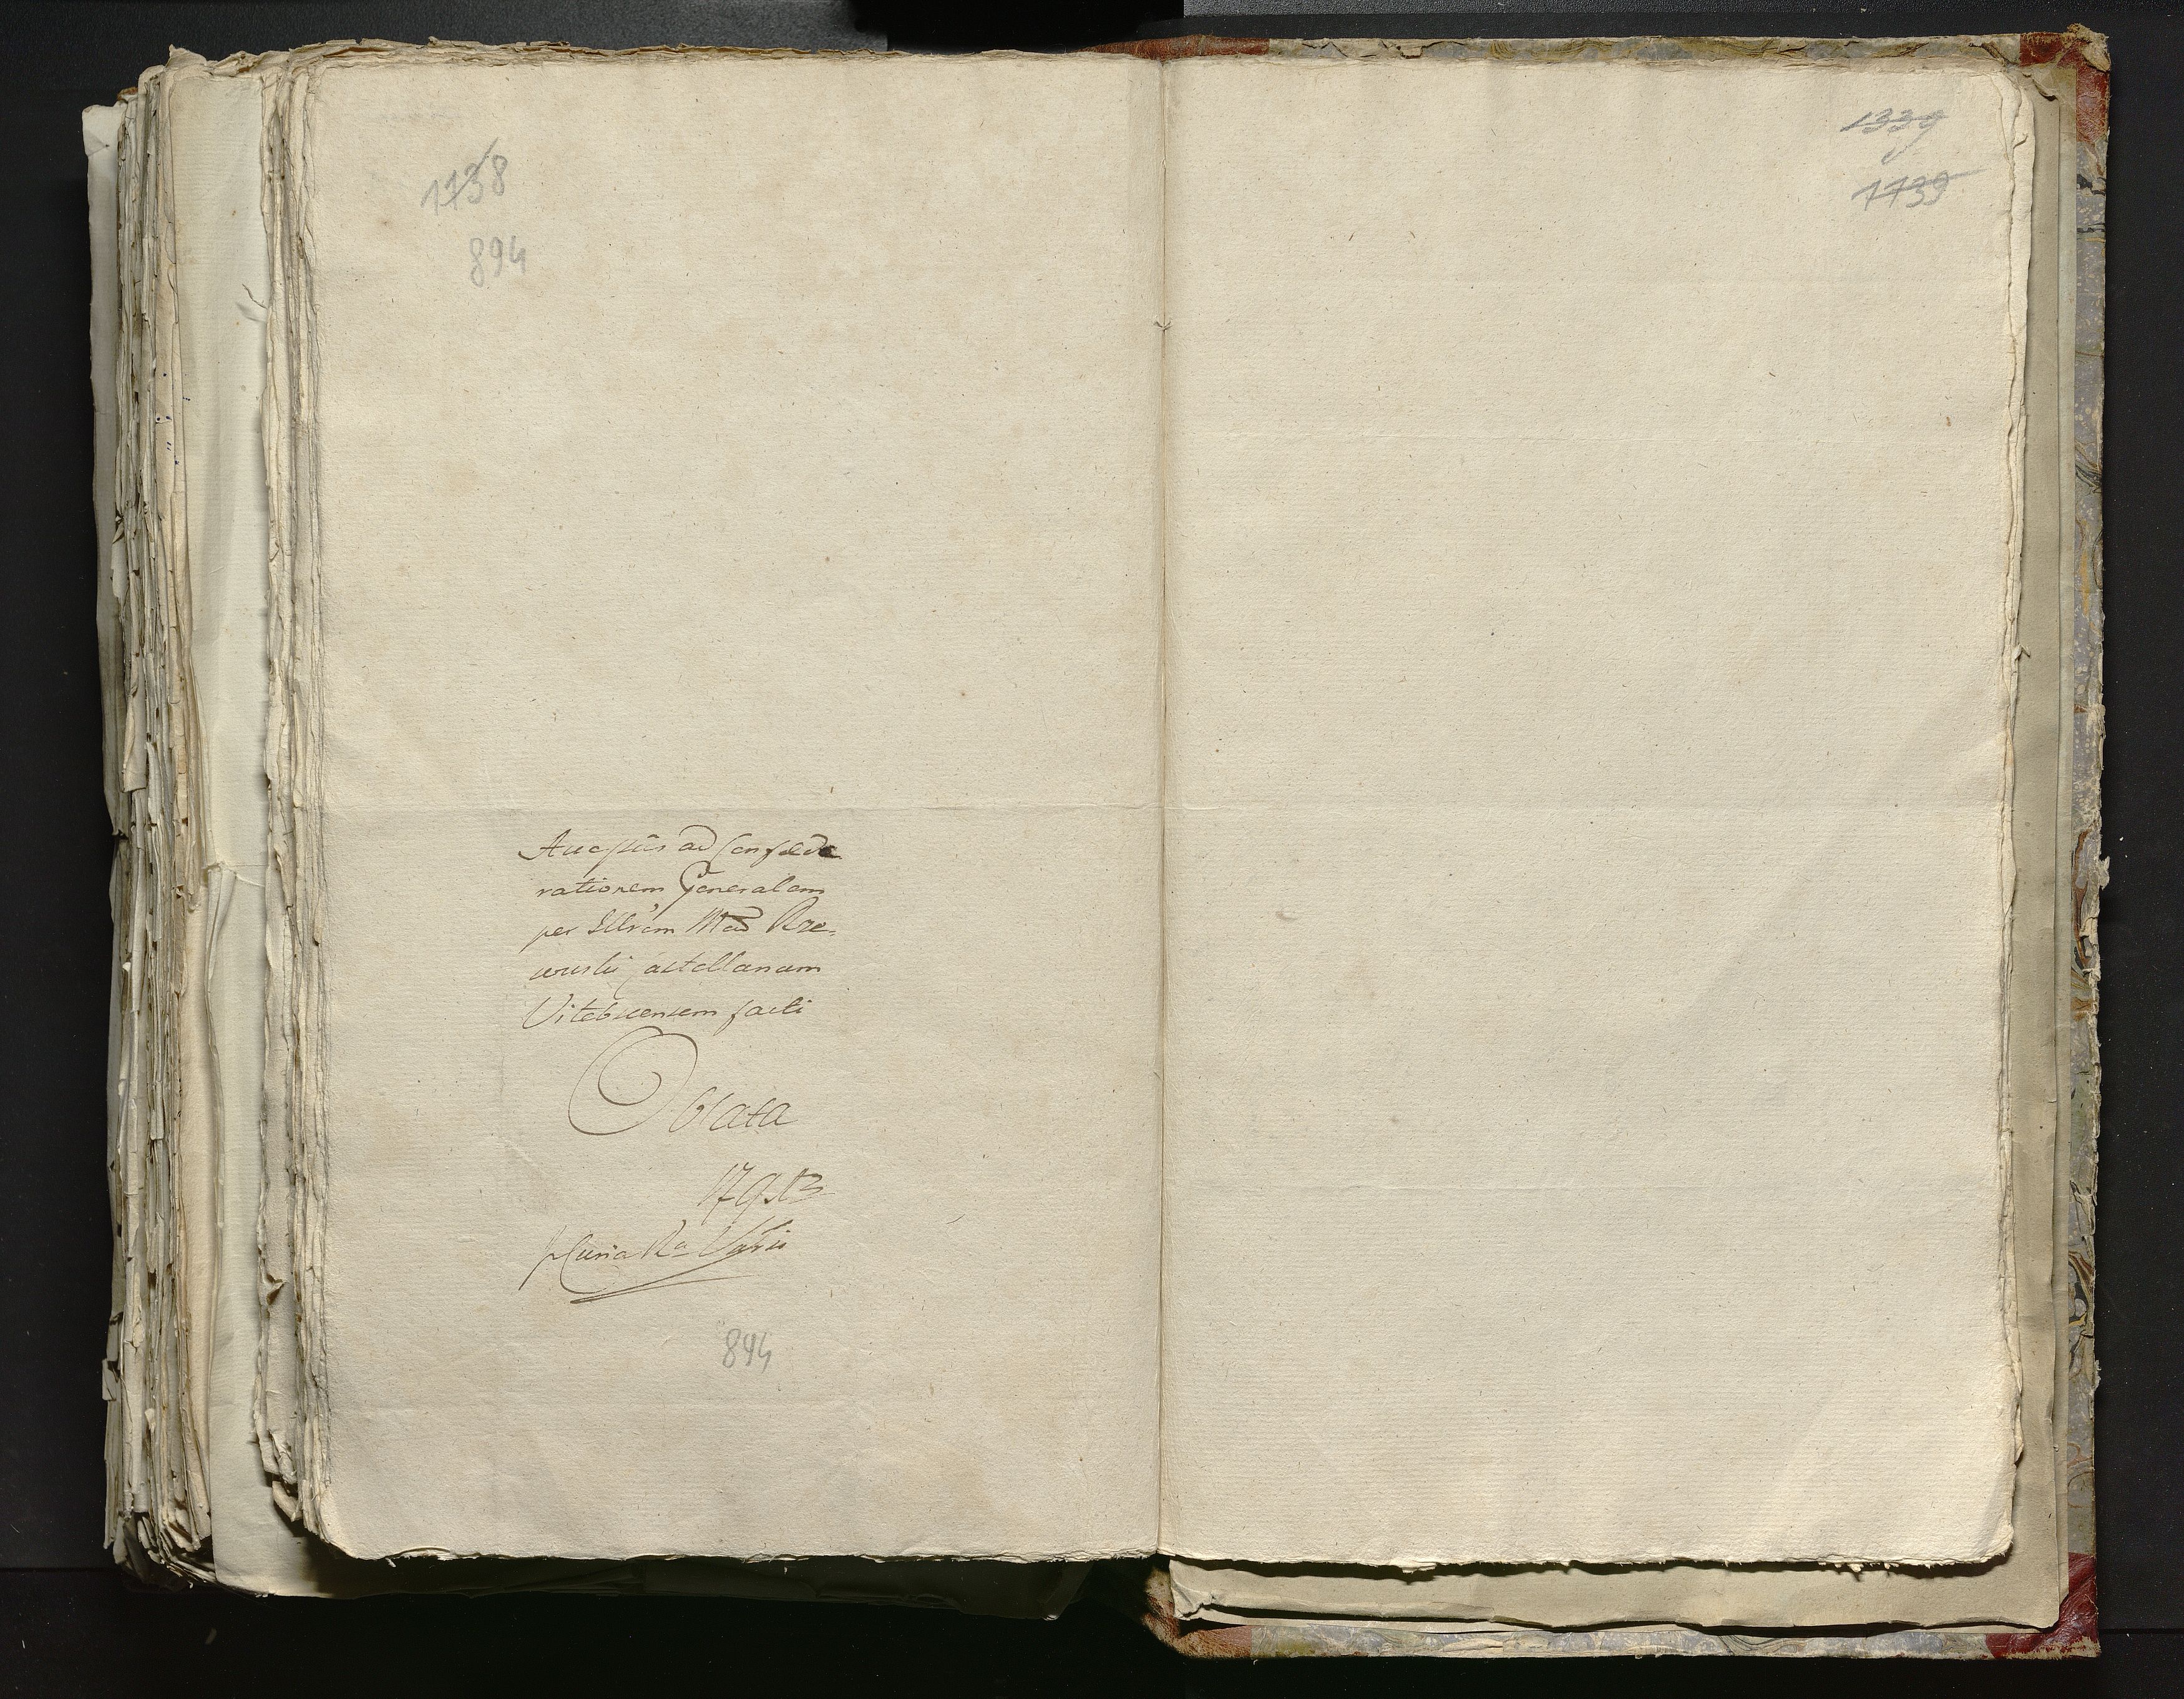 1738
894
Accessus ad Confœde
rationem Generalem
per Illrem Mad Rze-
wuski Castellanam
Vitebscensem facti
Oblata
1793
894
1339
1739